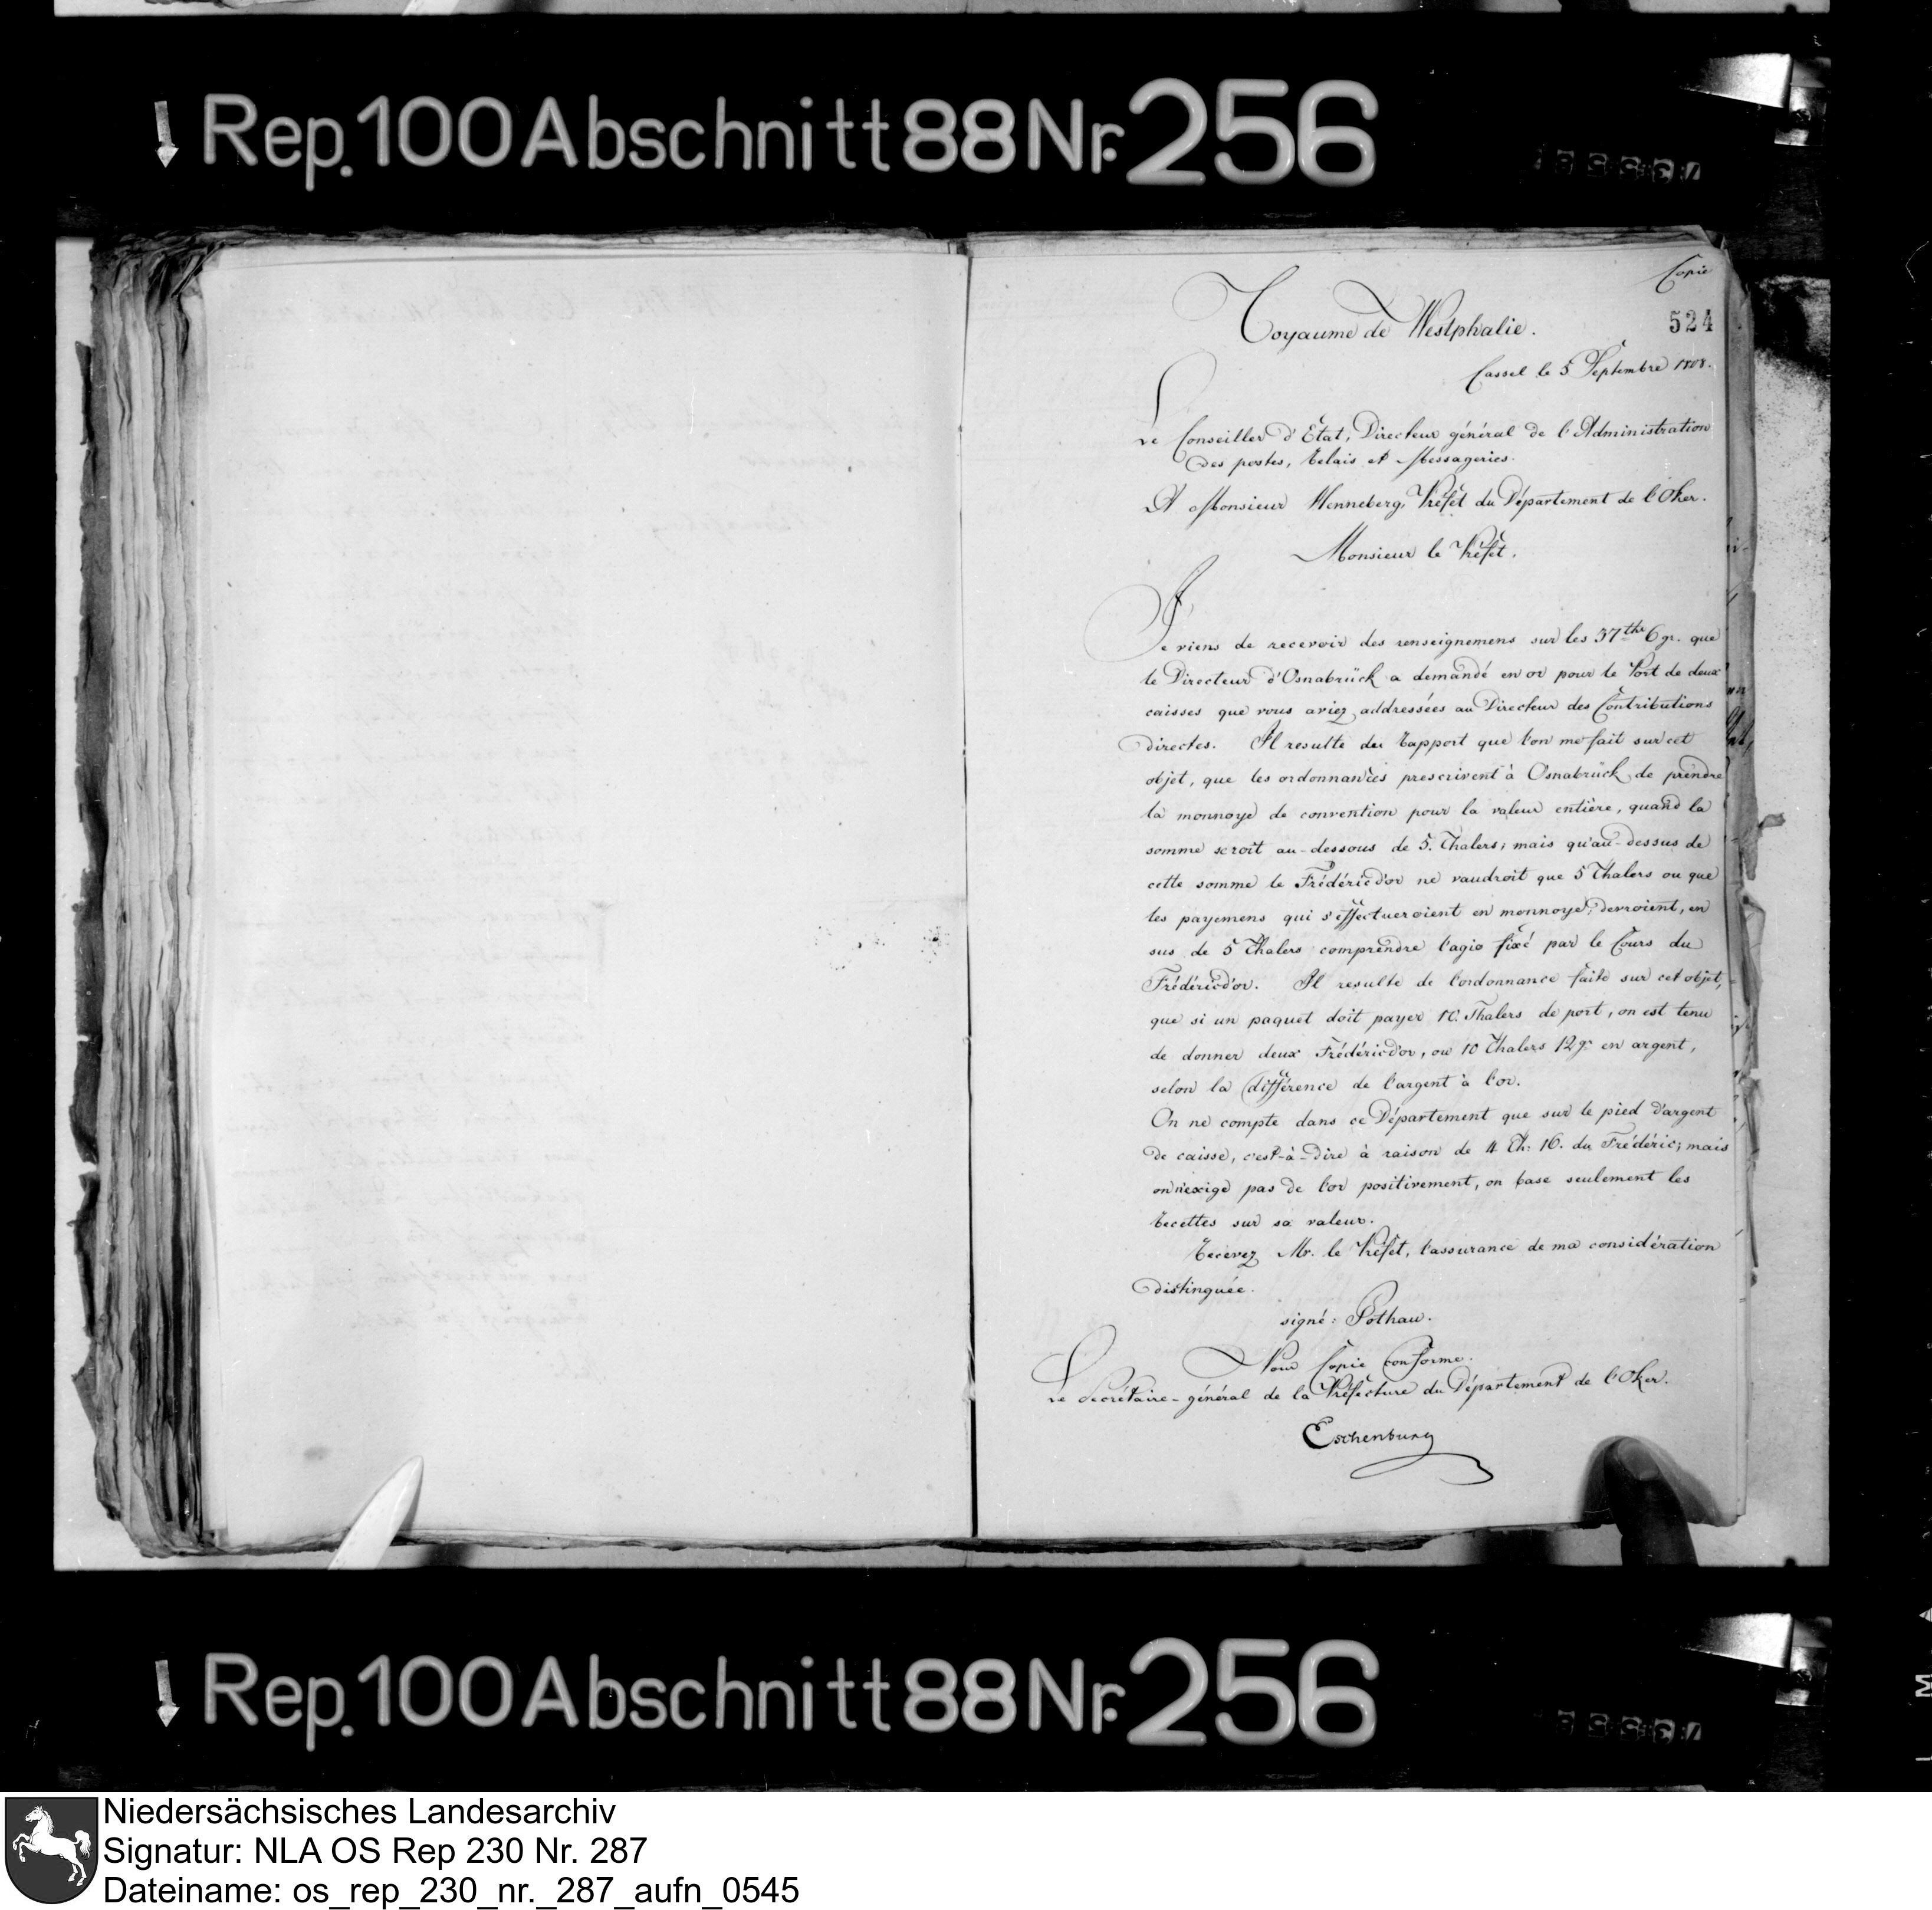 Rep. 100 Abschnitt 88 Nr. 256
Copie
524
Royaume de Westphalie.
Cassel le 5 Septembre 1808.
Le Conseiller d'Etat, Directeur général de l'Administration
des postes, Relais et Messageries.
A Monsieur Henneberg, Préfet du Département de l'Oker.
Monsieur le Préfet.
Je viens de recevoir des renseignemens sur les 37 thr 6 gr. que
le Directeur d'Osnabrück a demandé en or pour le Port de deux
caisses que vous aviez addressées au Directeur des Contributions
directes. Il resulte du Rapport que l'on me fait sur cet
objet, que les ordonnances prescrivent à Osnabrück de prendre
la monnoye de convention pour la valeur entière, quand la
somme seroit au-dessous de 5. Thalers; mais qu'au-dessus de
cette somme le Frédéricd'or ne vaudroit que 5 Thalers ou que
les payemens qui s'effectueroient en monnoye, devroient, en
sus de 5 Thalers comprendre l'agio fixé par le Cours du
Frédéricd'or. Il resulte de l'ordonnance faite sur cet objet,
que si un paquet doit payer 10. Thalers de port, on est tenu
de donner deux Frédéricd'or, ou 10 Thalers 12 gr en argent,
selon la différence de l'argent à l'or.
On ne compte dans ce Département que sur le pied d'argent
de caisse, c'est-à-dire à raison de 4 Th: 16. du Frédéric; mais
on n'exige pas de l'or positivement, on base seulement les
Recettes sur sa valeur.
Recevez Mr. le Préfet, l'assurance de ma considération
distinguée.
signé: Pothau.
Pour Copie conforme.
Le Secrétaire-général de la Préfecture du Département de l'Oker.
Eschenburg
Rep. 100 Abschnitt 88 Nr. 256
Niedersächsisches Landesarchiv
Signatur: NLA OS Rep 230 Nr. 287
Dateiname: os_rep_230_nr._287_aufn_0545